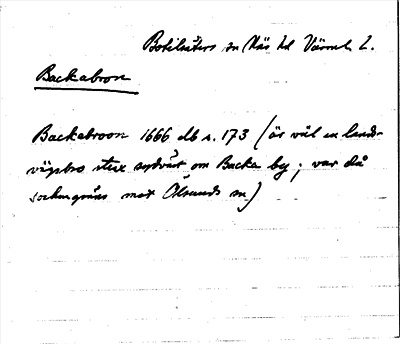 Botilsäters sn Näs hd Värml. L.
Backabron
Backebroon 1666 db s. 173 (är väl en lands-
vägsbro strax sydväst om Backa by; var då
sockengräns mot Ölseruds sn)